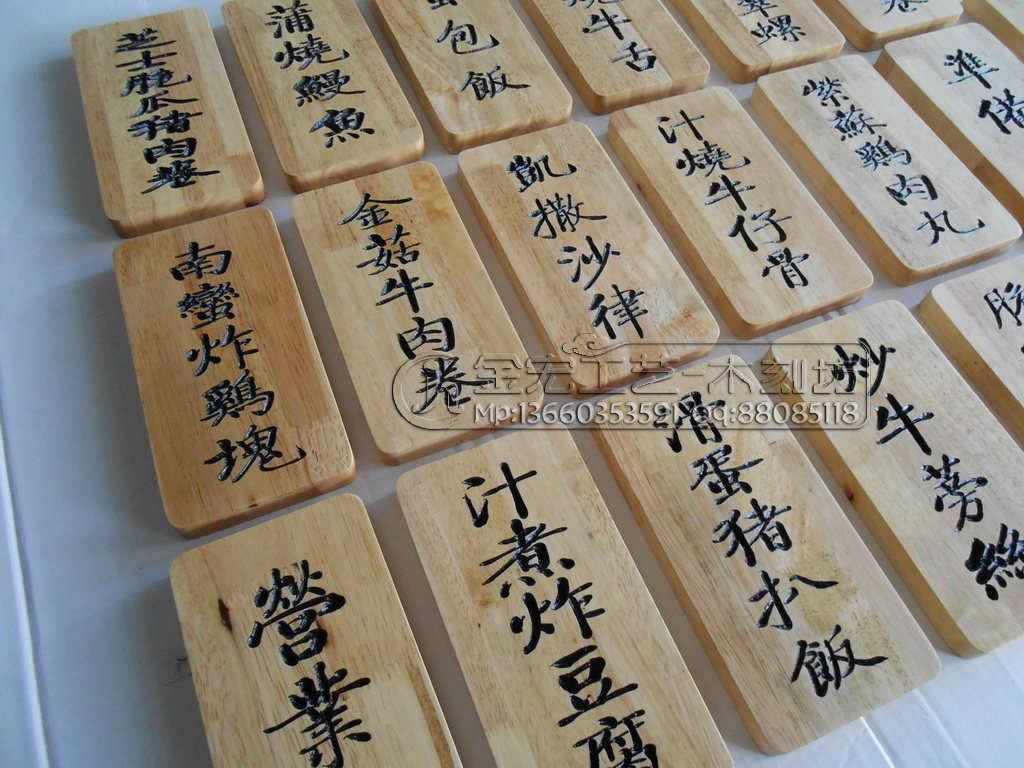 芝士脆瓜豬肉卷
蒲燒鰻魚
包飯
燒牛舌
螺
卷
南蠻炸鷄塊
金菇牛肉卷
凱撒沙律
汁燒牛仔骨
紫蘇鷄肉丸
準備
營業
汁煮炸豆腐
滑蛋猪扒飯
炒牛蒡絲
金宏工艺-木刻坊
Mp:13660353591 qq:88085118